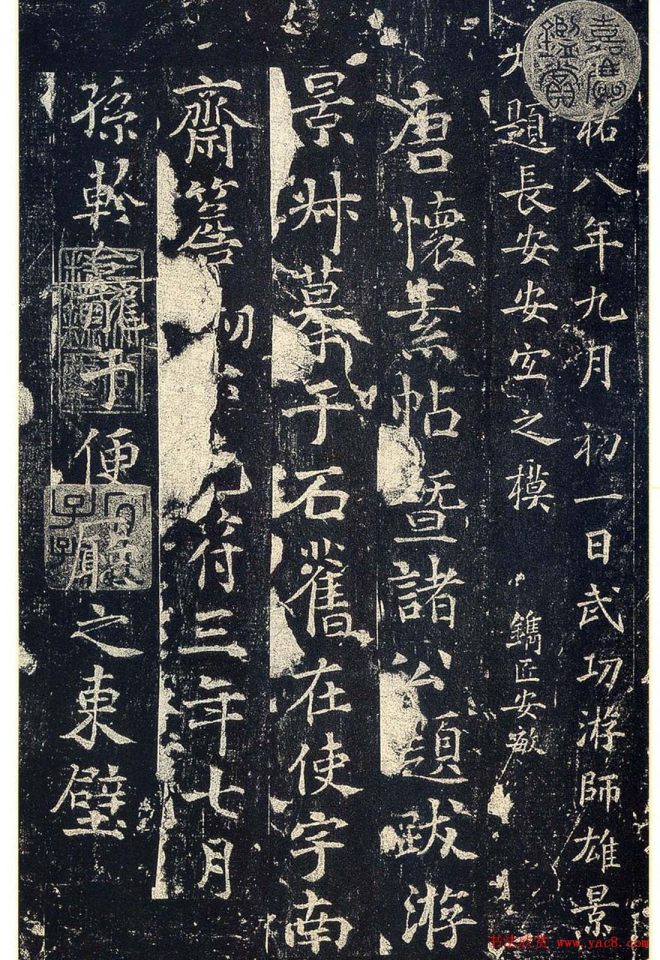 祐八年九月初一日武功游師雄景
題長安安宜之模 鐫匠安敏
唐懷素帖曁諸公題跋游
景叔摹于石舊在使宇南
齋簷 元符三年七月
孫軫龕于便廳之東壁
书法欣赏 www.yac8.com